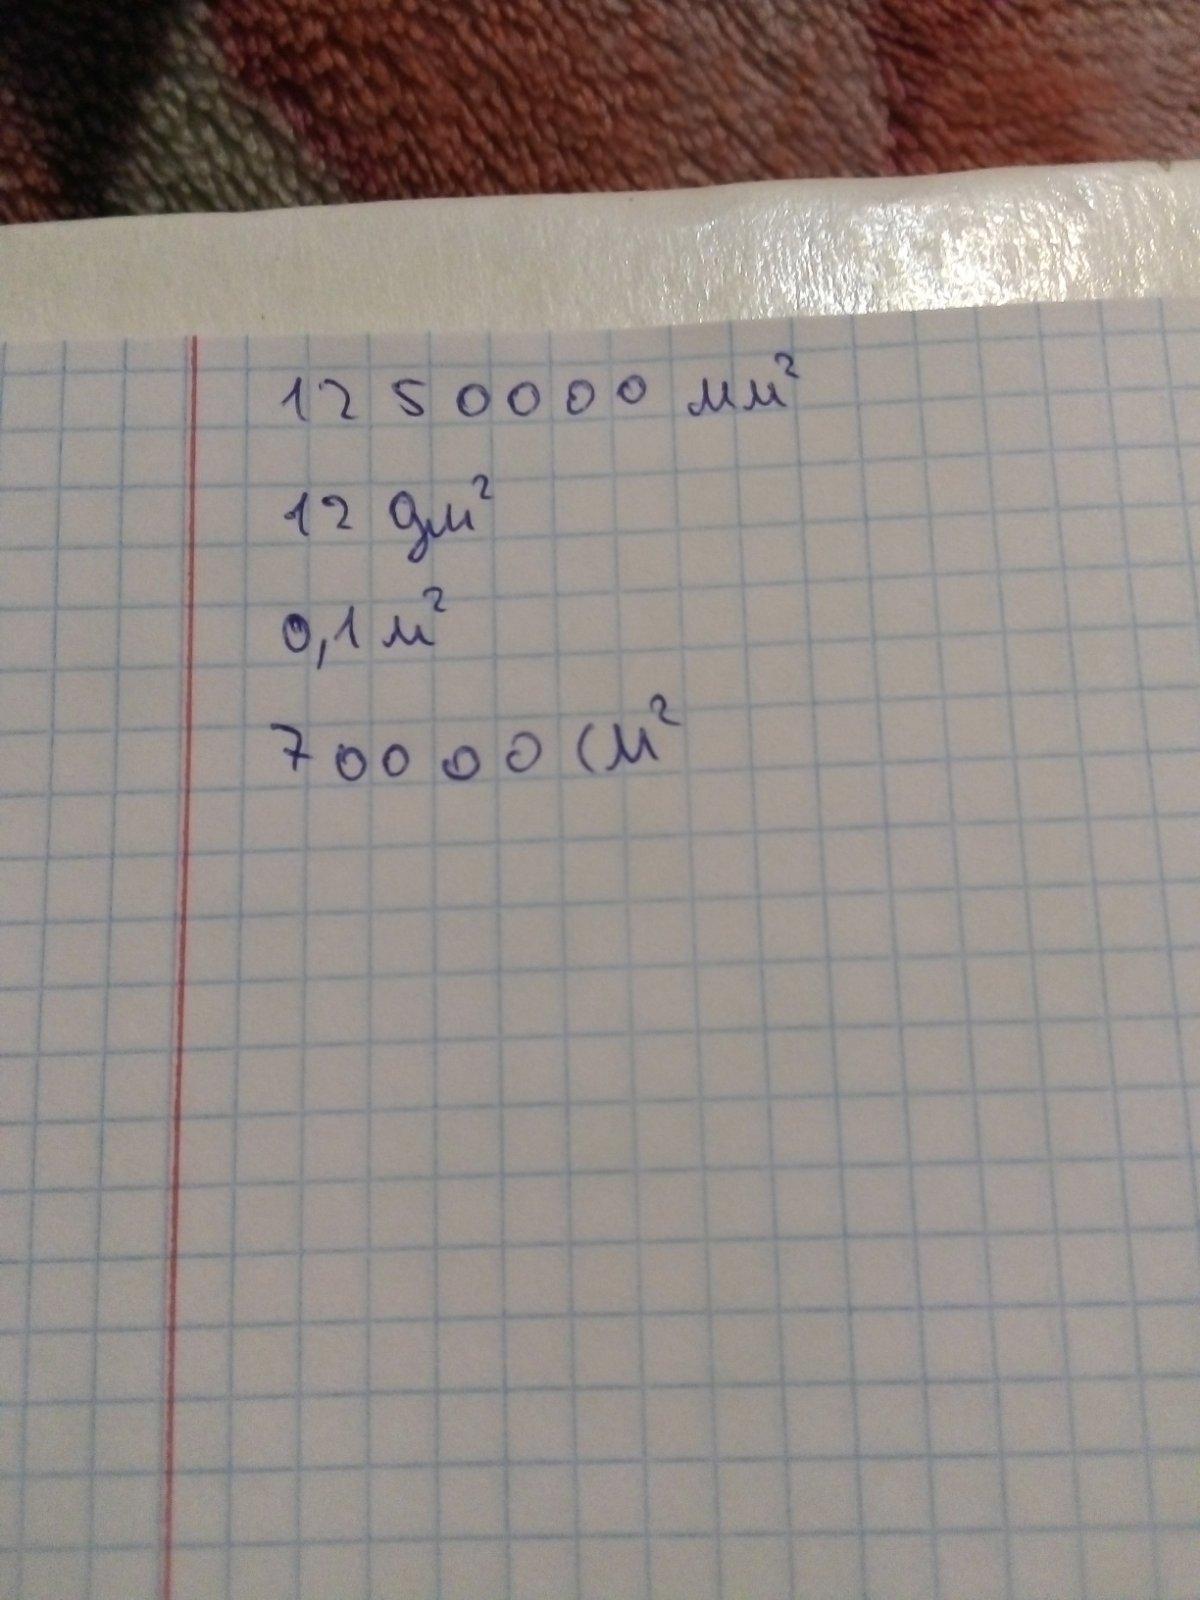 1250000 мм²
12 дм²
0,1 м²
70000 см²